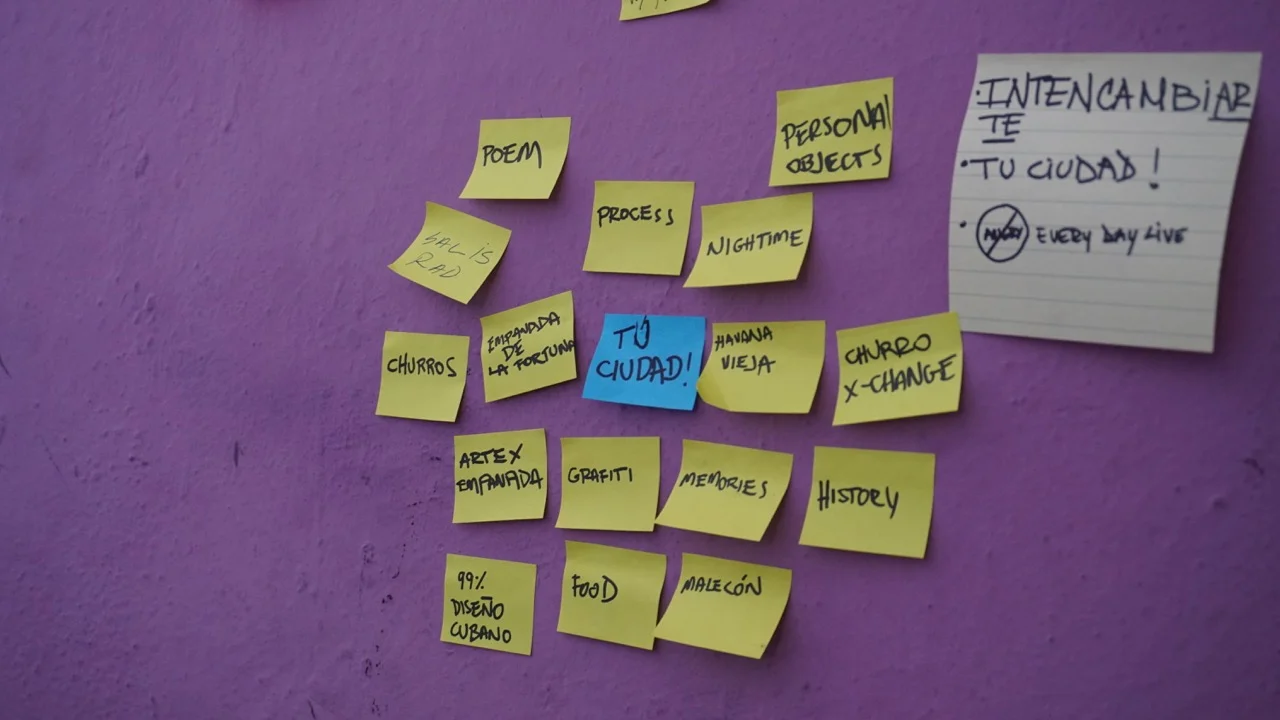 POEM
PERSONAL
OBJECTS
PROCESS
NIGHTIME
SAL IS
RAD
CHURROS
EMPANADA
DE
LA FORTUNA
TU
CIUDAD!
HAVANA
VIEJA
CHURRO
X-CHANGE
ARTE X
EMPANADA
GRAFITI
MEMORIES
HISTORY
99%
DISEÑO
CUBANO
FOOD
MALECÓN
·INTENCAMBIAR
TE
·TU CIUDAD!
· EVERY DAY LIVE